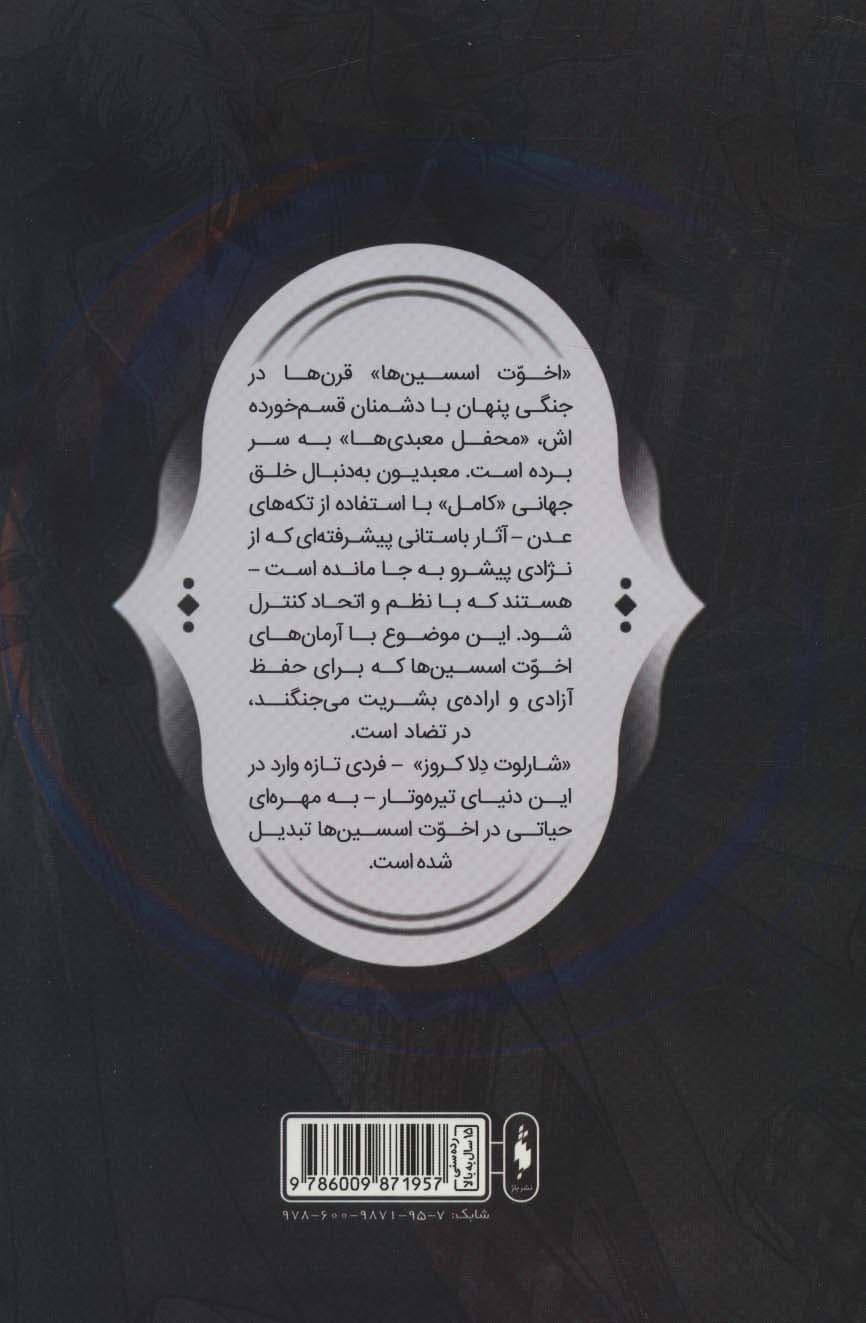 «اخوّت اسسین‌ها» قرن‌ها در
جنگی پنهان با دشمنان قسم‌خورده
اش، «محفل معبدی‌ها» به سر
برده است. معبدیون به‌دنبال خلق
جهانی «کامل» با استفاده از تکه‌های
عدن – آثار باستانی پیشرفته‌ای که از
نژادی پیشرو به جا مانده است –
هستند که با نظم و اتحاد کنترل
شود. این موضوع با آرمان‌های
اخوّت اسسین‌ها که برای حفظ
آزادی و اراده‌ی بشریت می‌جنگند،
در تضاد است.
«شارلوت دِلا کروز» – فردی تازه وارد در
این دنیای تیره‌وتار – به مهره‌ای
حیاتی در اخوّت اسسین‌ها تبدیل
شده است.
رده‌سنی
۱۵ سال به بالا
9 786009 871957
نشر باژ
شابک: ۹۷۸-۶۰۰-۹۸۷۱-۹۵-۷